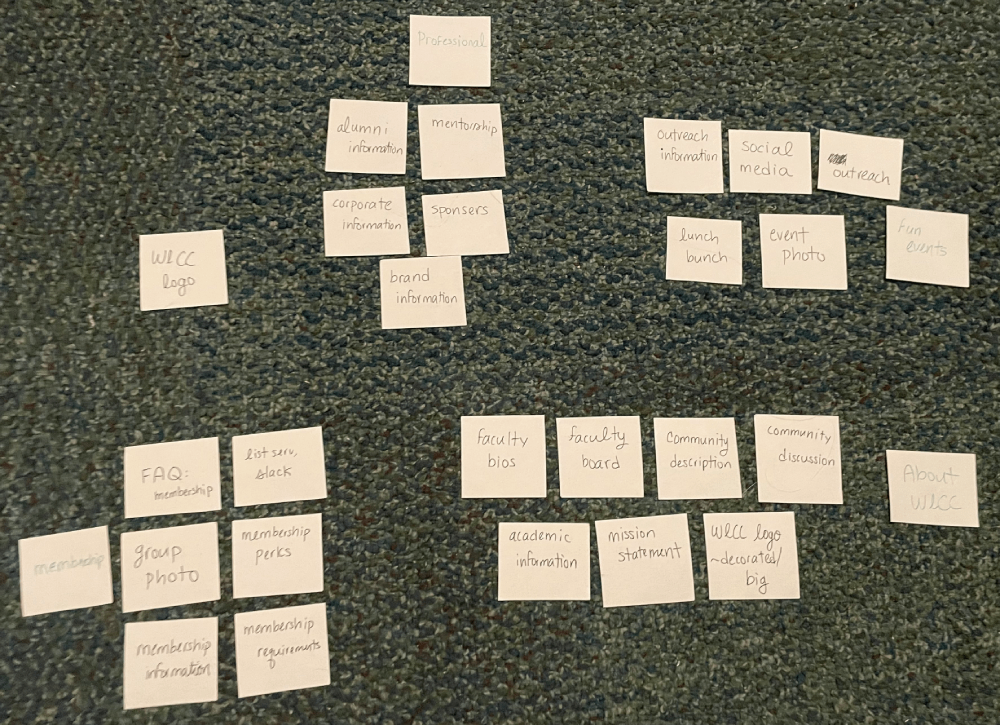 Professional
alumni
information
mentorship
corporate
information
sponsers
brand
information
WLCC
logo
outreach
information
social
media
outreach
lunch
bunch
event
photo
Fun
events
FAQ:
membership
list serv,
slack
membership
group
photo
membership
perks
membership
information
membership
requirements
faculty
bios
faculty
board
Community
description
community
discussion
About
WLCC
academic
information
mission
statement
WLCC logo
~decorated/
big